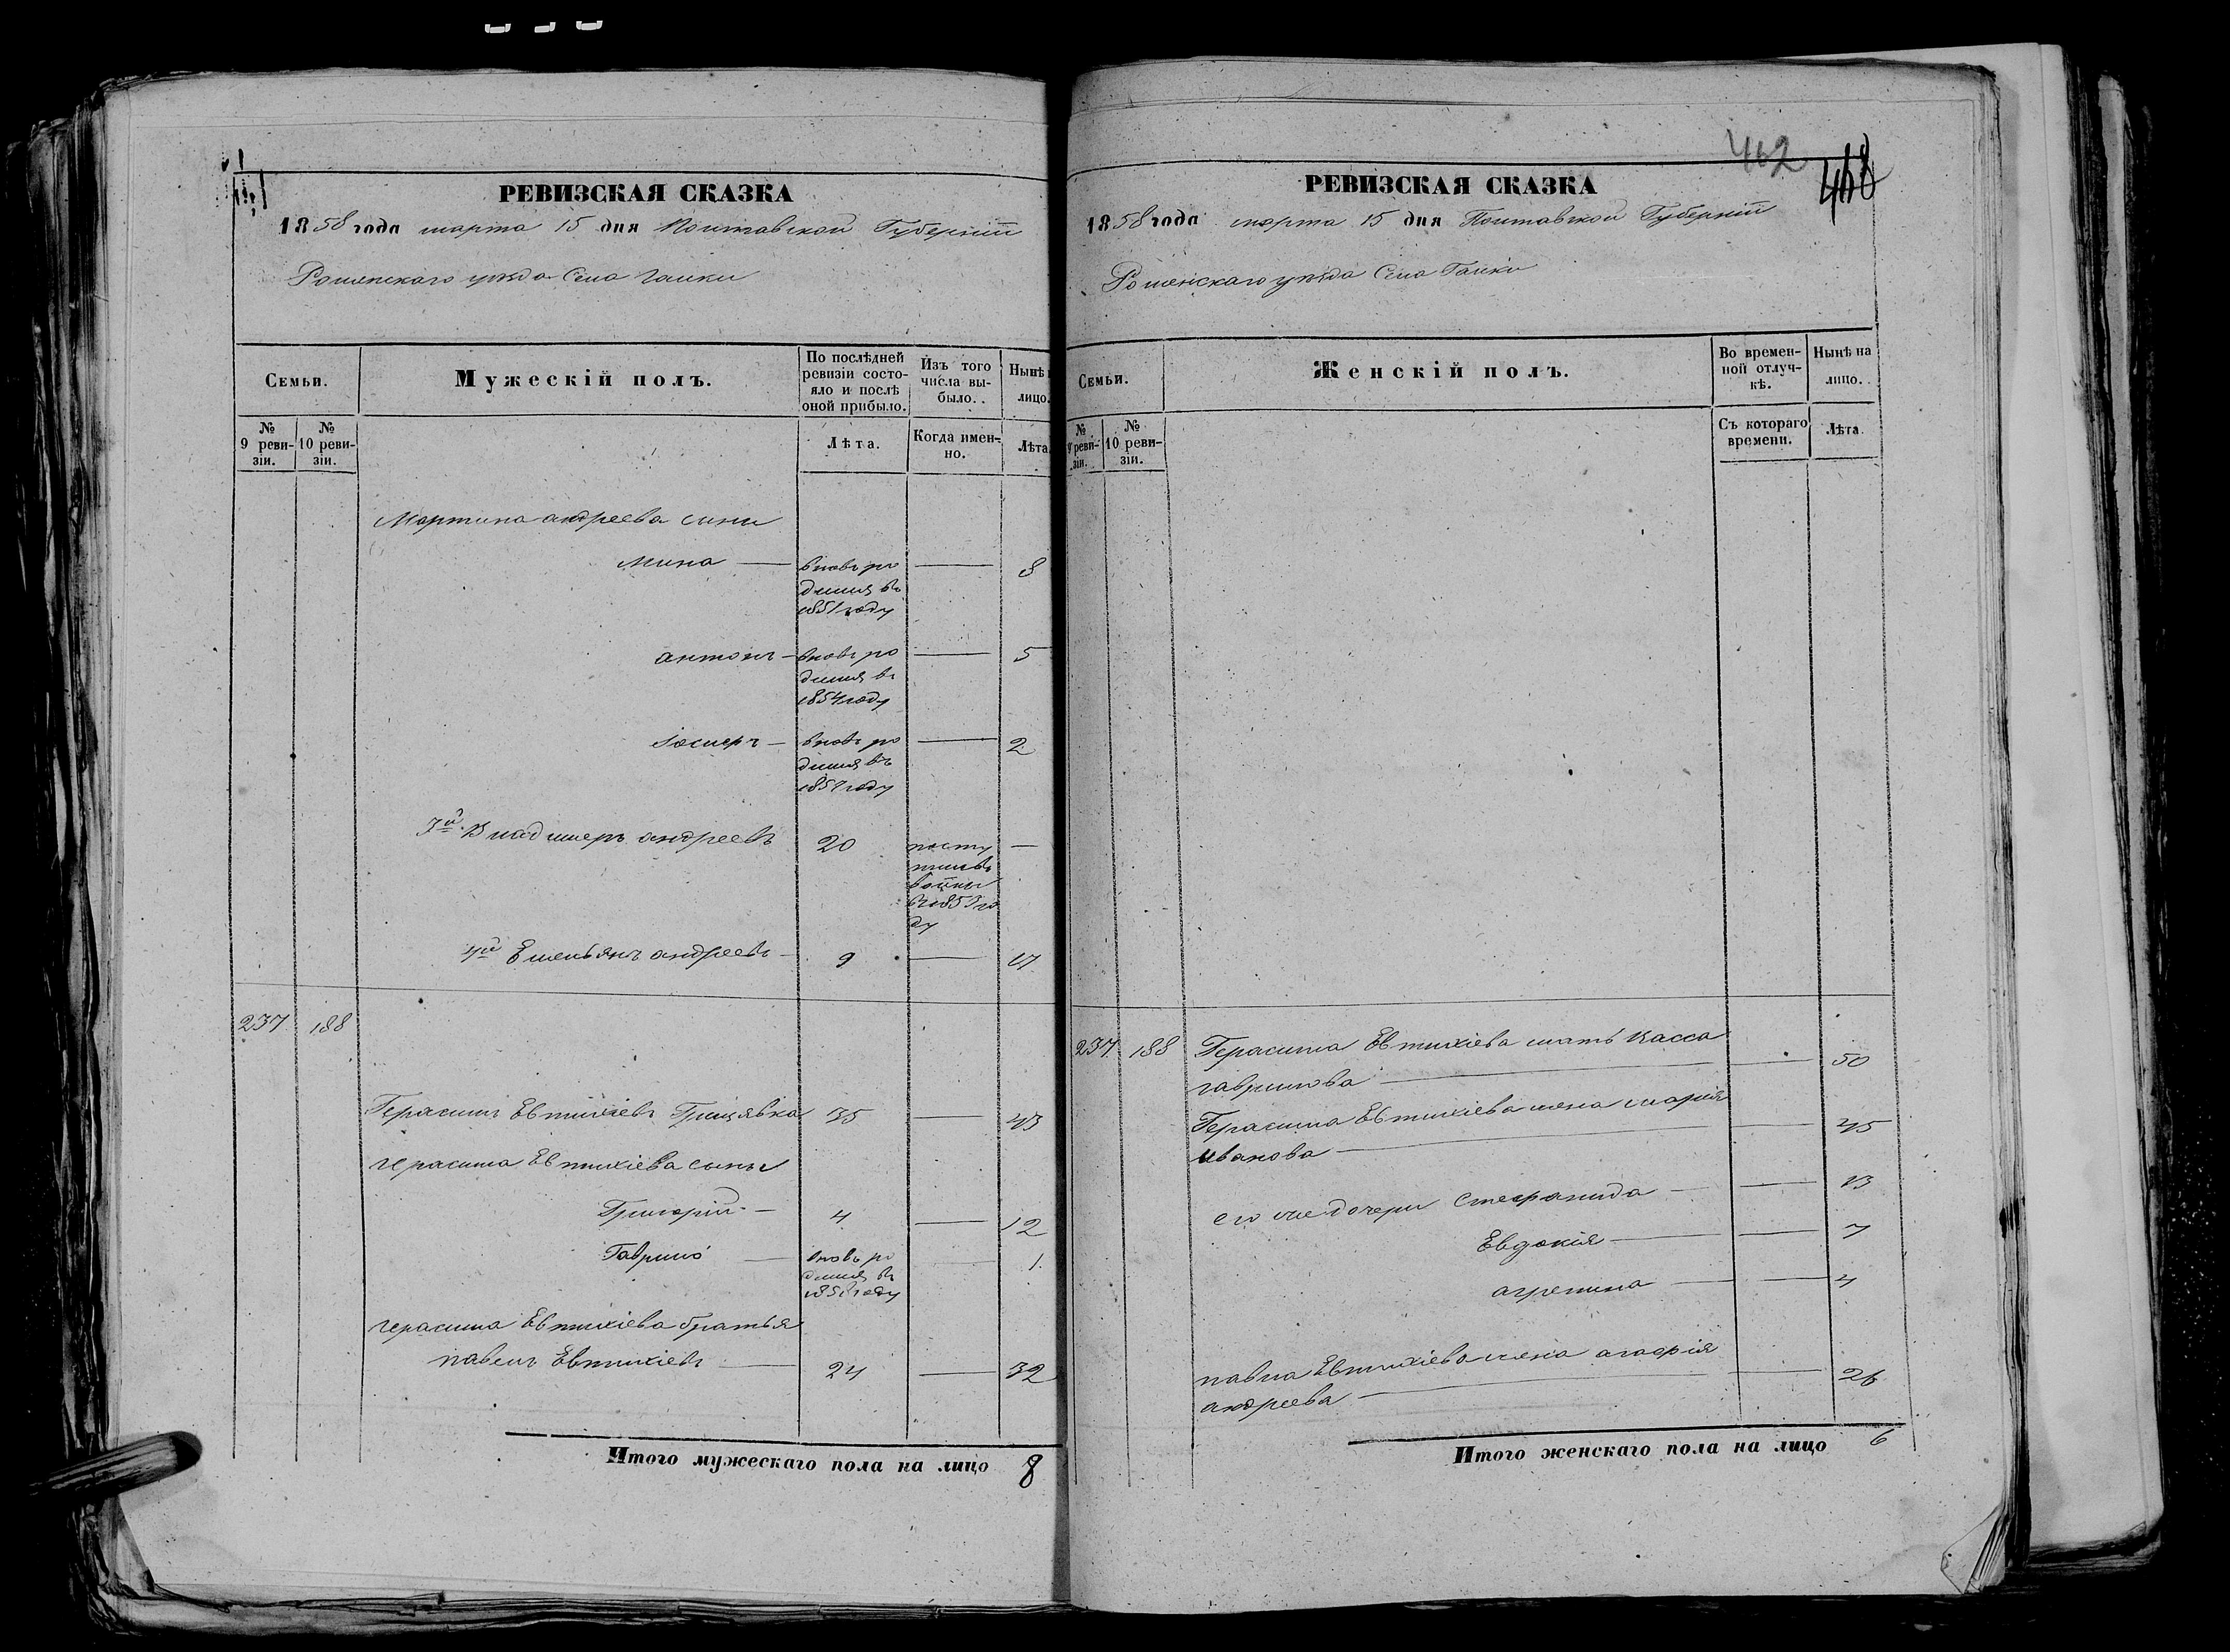 РЕВИЗСКАЯ СКАЗКА
1858 года марта 15 дня Полтавской Губерніи
Роменскаго уѣзда Села Галки
Семьи.
Мужескій полъ.
По послѣдней ревизіи состояло и послѣ оной прибыло.
Изъ того числа выбыло.
Нынѣ
лицо.
№ 9 ревизіи.
№ 10 ревизіи.
Лѣта.
Когда именно.
Лѣта
Мартина андреева сыни
Мина — вновь ро — 8
дился въ
1851 году
антонъ — вновь ро — 5
дился въ
1854 году
вновь ро — 2
дился въ
1857 году
3й Владимеръ андреевъ 20 посту —
въ 1853 го
ду
4й Емельянъ андреевъ — 9 — 17
237 188
Герасимъ Евтихіевъ Грицявка 35 — 43
герасима Евтихіева сыны
Григорій — 4 — 12
Гаврило — вновь ро — 1
дился въ
году
герасима Евтихіева братья
павелъ Евтихіевъ — 24 — 32
Итого мужескаго пола на лицо 8
462
468
РЕВИЗСКАЯ СКАЗКА
1858 года марта 15 дня Полтавской Губерніи
Роменскаго уѣзда Села Галки
Семьи.
Женскій полъ.
Во временной отлучкѣ.
Нынѣ на лицо.
№ 9 ревизіи.
№ 10 ревизіи.
Съ котораго времени.
Лѣта.
237 188 Герасима Евтихіева мать Васса
гаврилова — 50
Герасима Евтихіева жена марія
Иванова — 45
его же дочери Стефанида — 13
Евдокія — 7
агрепина — 4
павла Евтихіева жена агафія
андреева — 26
Итого женскаго пола на лицо 6